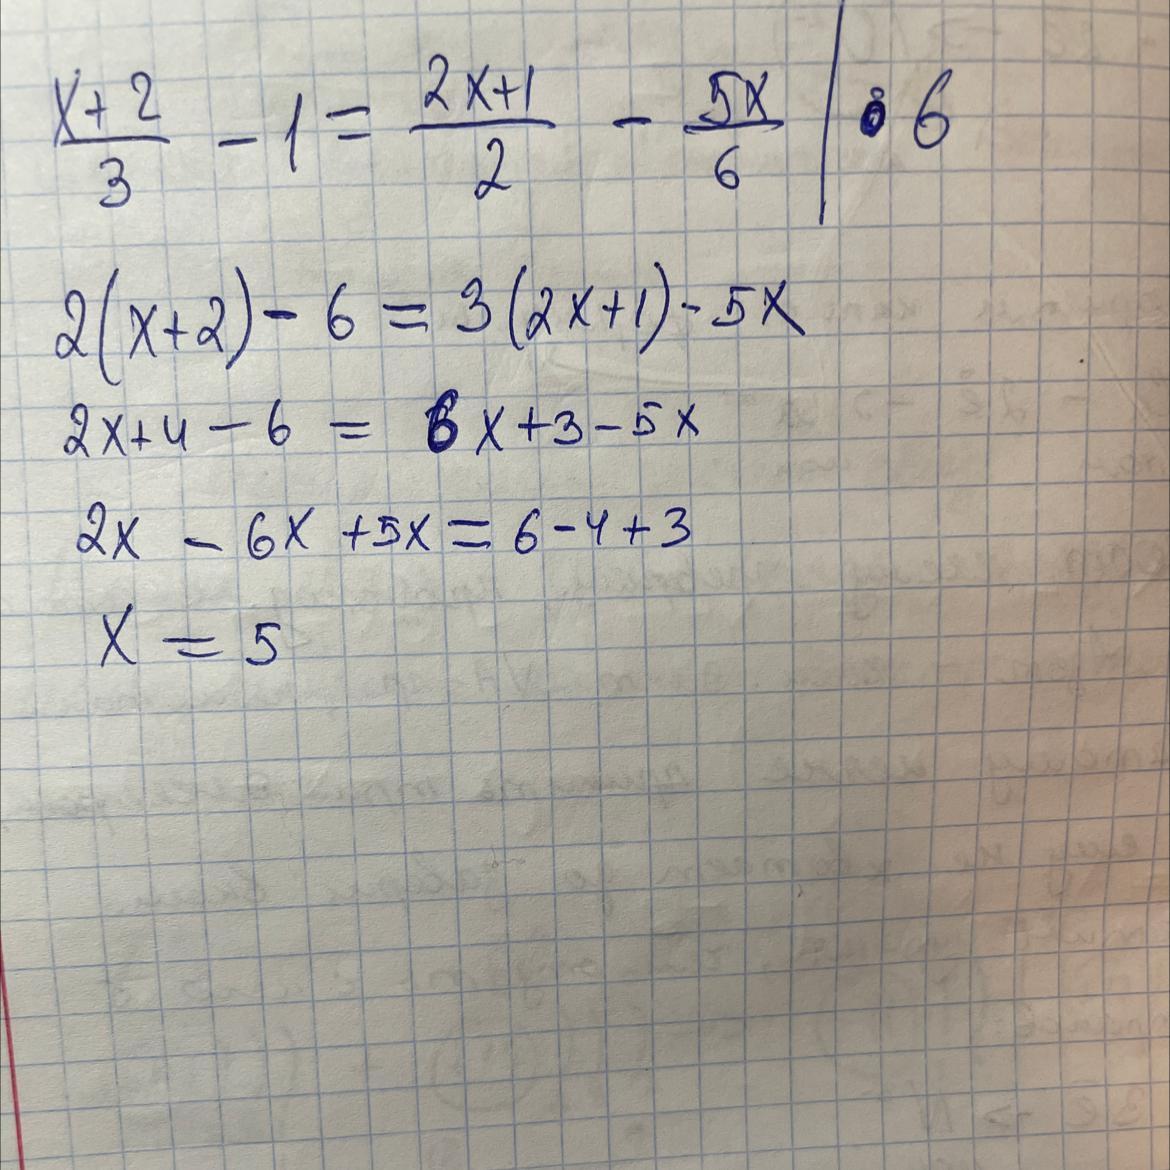 (x+2)/3 - 1 = (2x+1)/2 - 5x/6 | · 6
2(x+2) - 6 = 3(2x+1) - 5x
2x+4 - 6 = 6x+3-5x
2x - 6x +5x = 6-4+3
x = 5